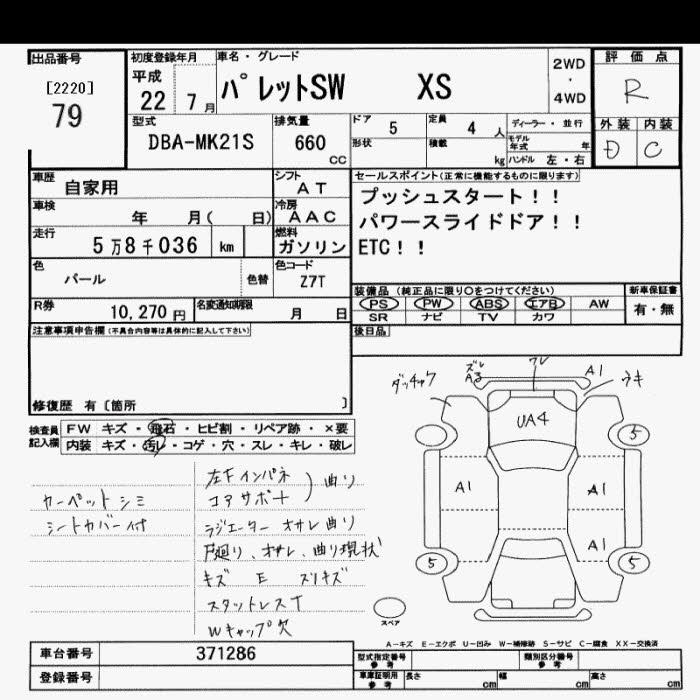 出品番号
[2220]
79
初度登録年月
平成
22 7月
車名・グレード
パレットSW XS
2WD
・
4WD
評価点
R
外装 内装
D C
型式
DBA-MK21S
排気量
660
CC
ドア 5
定員 4 人
ディーラー・並行
形状
積載 kg
モデル年式 年
ハンドル 左・右
車歴 自家用
シフト AT
車検 年 月( 日)
冷房 AAC
走行 5万8千036 km
燃料 ガソリン
色 パール 色替
色コード Z7T
R券 10,270円
名変通知期限 月 日
セールスポイント(正常に機能するものに限ります)
プッシュスタート!!
パワースライドドア!!
ETC!!
装備品(純正品に限り○をつけてください)
PS PW ABS エアB AW
SR ナビ TV カワ
新車保証書
有・無
後日品
注意事項申告欄(不具合内容等は具体的に記入して下さい)
修復歴 有〔箇所 〕
検査員記入欄
FW キズ・飛石・ヒビ割・リペア跡・×要
内装 キズ・汚レ・コゲ・穴・スレ・キレ・破レ
カーペットシミ
シートカバー付
左Fインパネ
コアサポート
曲り
ラジエーター オサレ曲り
戸廻り、オサレ、曲り現状
キズ E スリキズ
スタットレスT
Wキャップ欠
ダッチャク
ズレ
A3
ワレ
A1
ウキ
UA4
5
A1
A1
A1
5
5
スペア
A-キズ E-エクボ U-凹み W-補修跡 S-サビ C-腐食 XX-交換済
車台番号 371286
登録番号
型式指定番号
参考
類別区分番号
参考
車庫証明用
参考
長さ cm
幅 cm
高さ cm